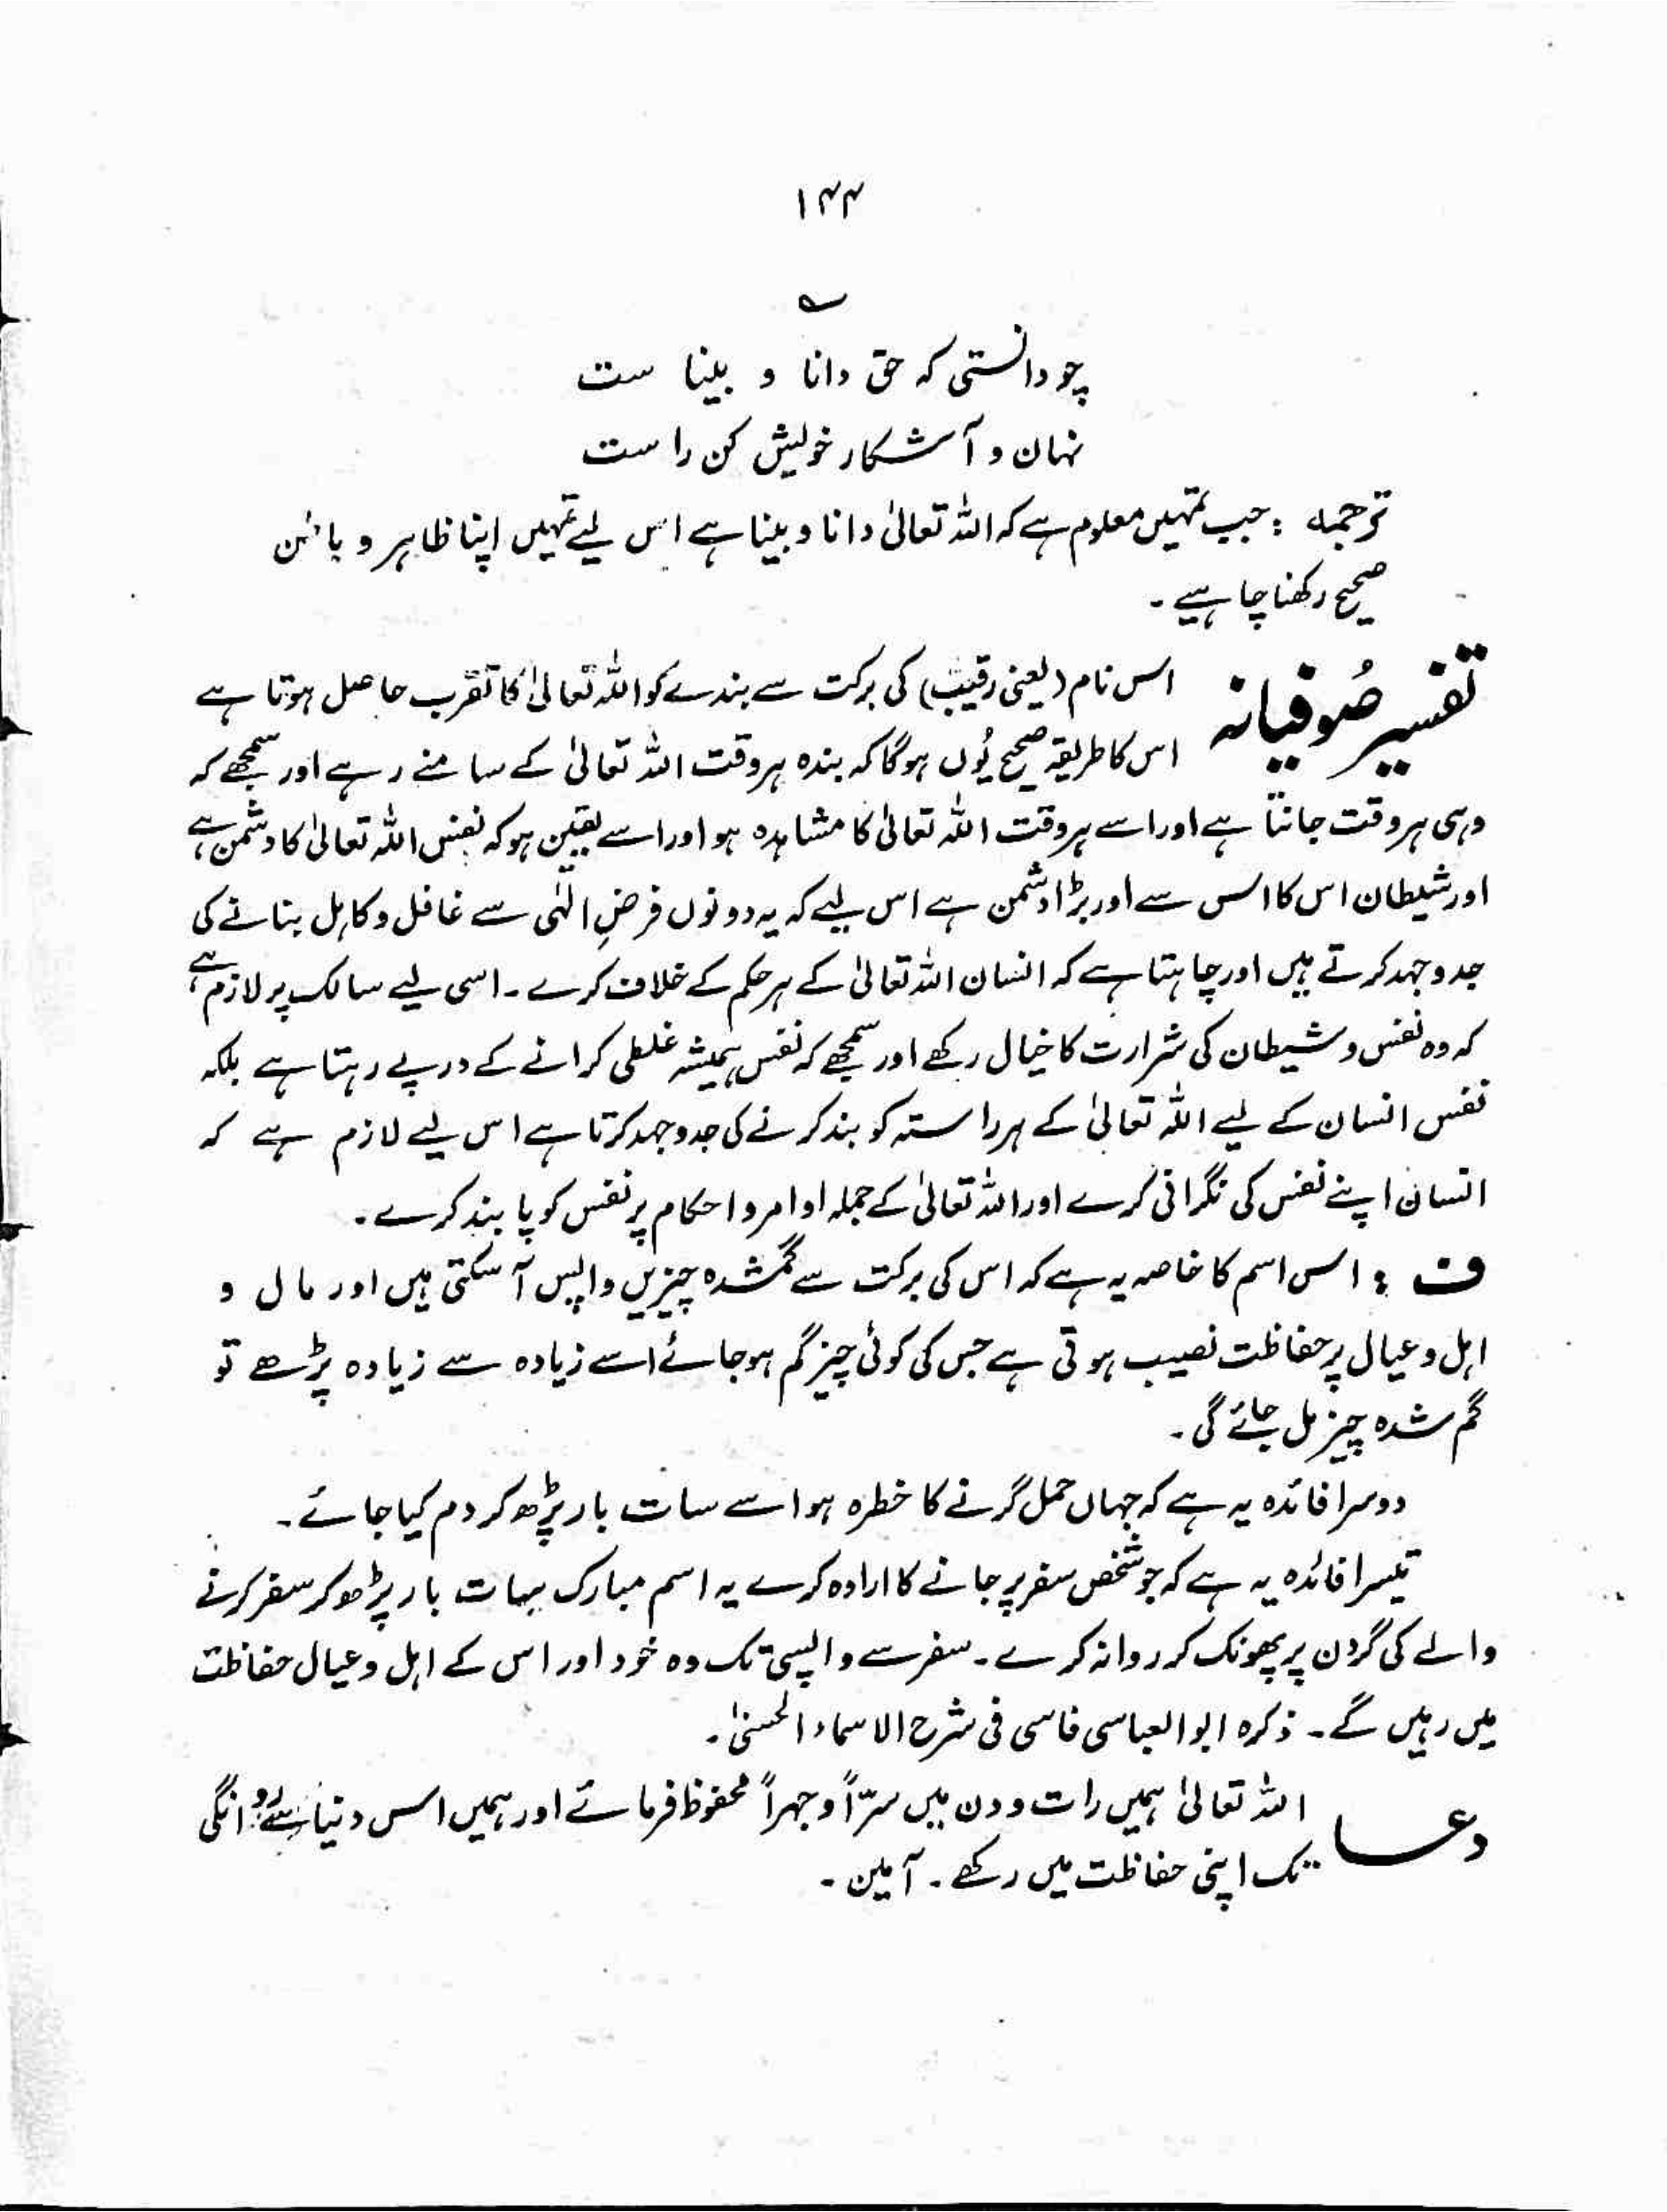 ۱۴۴
؎
چو دانستی کہ حق دانا و بینا ست
نہان و آشکار خویش کن راست
ترجمہ : جب تمہیں معلوم ہے کہ اللہ تعالیٰ دانا و بینا ہے اس لیے تمہیں اپنا ظاہر و باطن
صحیح رکھنا چاہیے ۔
تفسیر صُوفیانہ اس نام (یعنی رقیب) کی برکت سے بندے کو اللہ تعالیٰ کا تقرب حاصل ہوتا ہے
اس کا طریقہ صحیح یُوں ہوگا کہ بندہ ہر وقت اللہ تعالیٰ کے سامنے رہے اور سمجھے کہ
وہی ہر وقت جانتا ہے اور اسے ہر وقت اللہ تعالیٰ کا مشاہدہ ہو اور اسے یقین ہو کہ نفس اللہ تعالیٰ کا دشمن ہے
اور شیطان اس کا اس سے اور بڑا دشمن ہے اس لیے کہ یہ دونوں فرضِ الٰہی سے غافل و کاہل بنانے کی
جدوجہد کرتے ہیں اور چاہتا ہے کہ انسان اللہ تعالیٰ کے ہر حکم کے خلاف کرے ۔ اسی لیے سالک پر لازم ہے
کہ وہ نفس و شیطان کی شرارت کا خیال رکھے اور سمجھے کہ نفس ہمیشہ غلطی کرانے کے درپے رہتا ہے بلکہ
نفس انسان کے لیے اللہ تعالیٰ کے ہر راستہ کو بند کرنے کی جدوجہد کرتا ہے اس لیے لازم ہے کہ
انسان اپنے نفس کی نگرانی کرے اور اللہ تعالیٰ کے جملہ اوامر و احکام پر نفس کو پابند کرے ۔
ف : اس اسم کا خاصہ یہ ہے کہ اس کی برکت سے گمشدہ چیزیں واپس آ سکتی ہیں اور مال و
اہل و عیال پر حفاظت نصیب ہوتی ہے جس کی کوئی چیز گم ہو جائے اسے زیادہ سے زیادہ پڑھے تو
گم شدہ چیز مل جائے گی ۔
دوسرا فائدہ یہ ہے کہ جہاں حمل گرنے کا خطرہ ہو اسے سات بار پڑھ کر دم کیا جائے ۔
تیسرا فائدہ یہ ہے کہ جو شخص سفر پر جانے کا ارادہ کرے یہ اسم مبارک سات بار پڑھ کر سفر کرنے
والے کی گردن پر پھونک کر روانہ کرے ۔ سفر سے واپسی تک وہ خود اور اس کے اہل و عیال حفاظت
میں رہیں گے ۔ ذکرہ ابو العباسی فاسی فی شرح الاسماء الحسنیٰ ۔
دعا اللہ تعالیٰ ہمیں رات و دن میں سرّاً و جہراً محفوظ فرمائے اور ہمیں اس دنیا سے روانگی
تک اپنی حفاظت میں رکھے ۔ آمین ۔